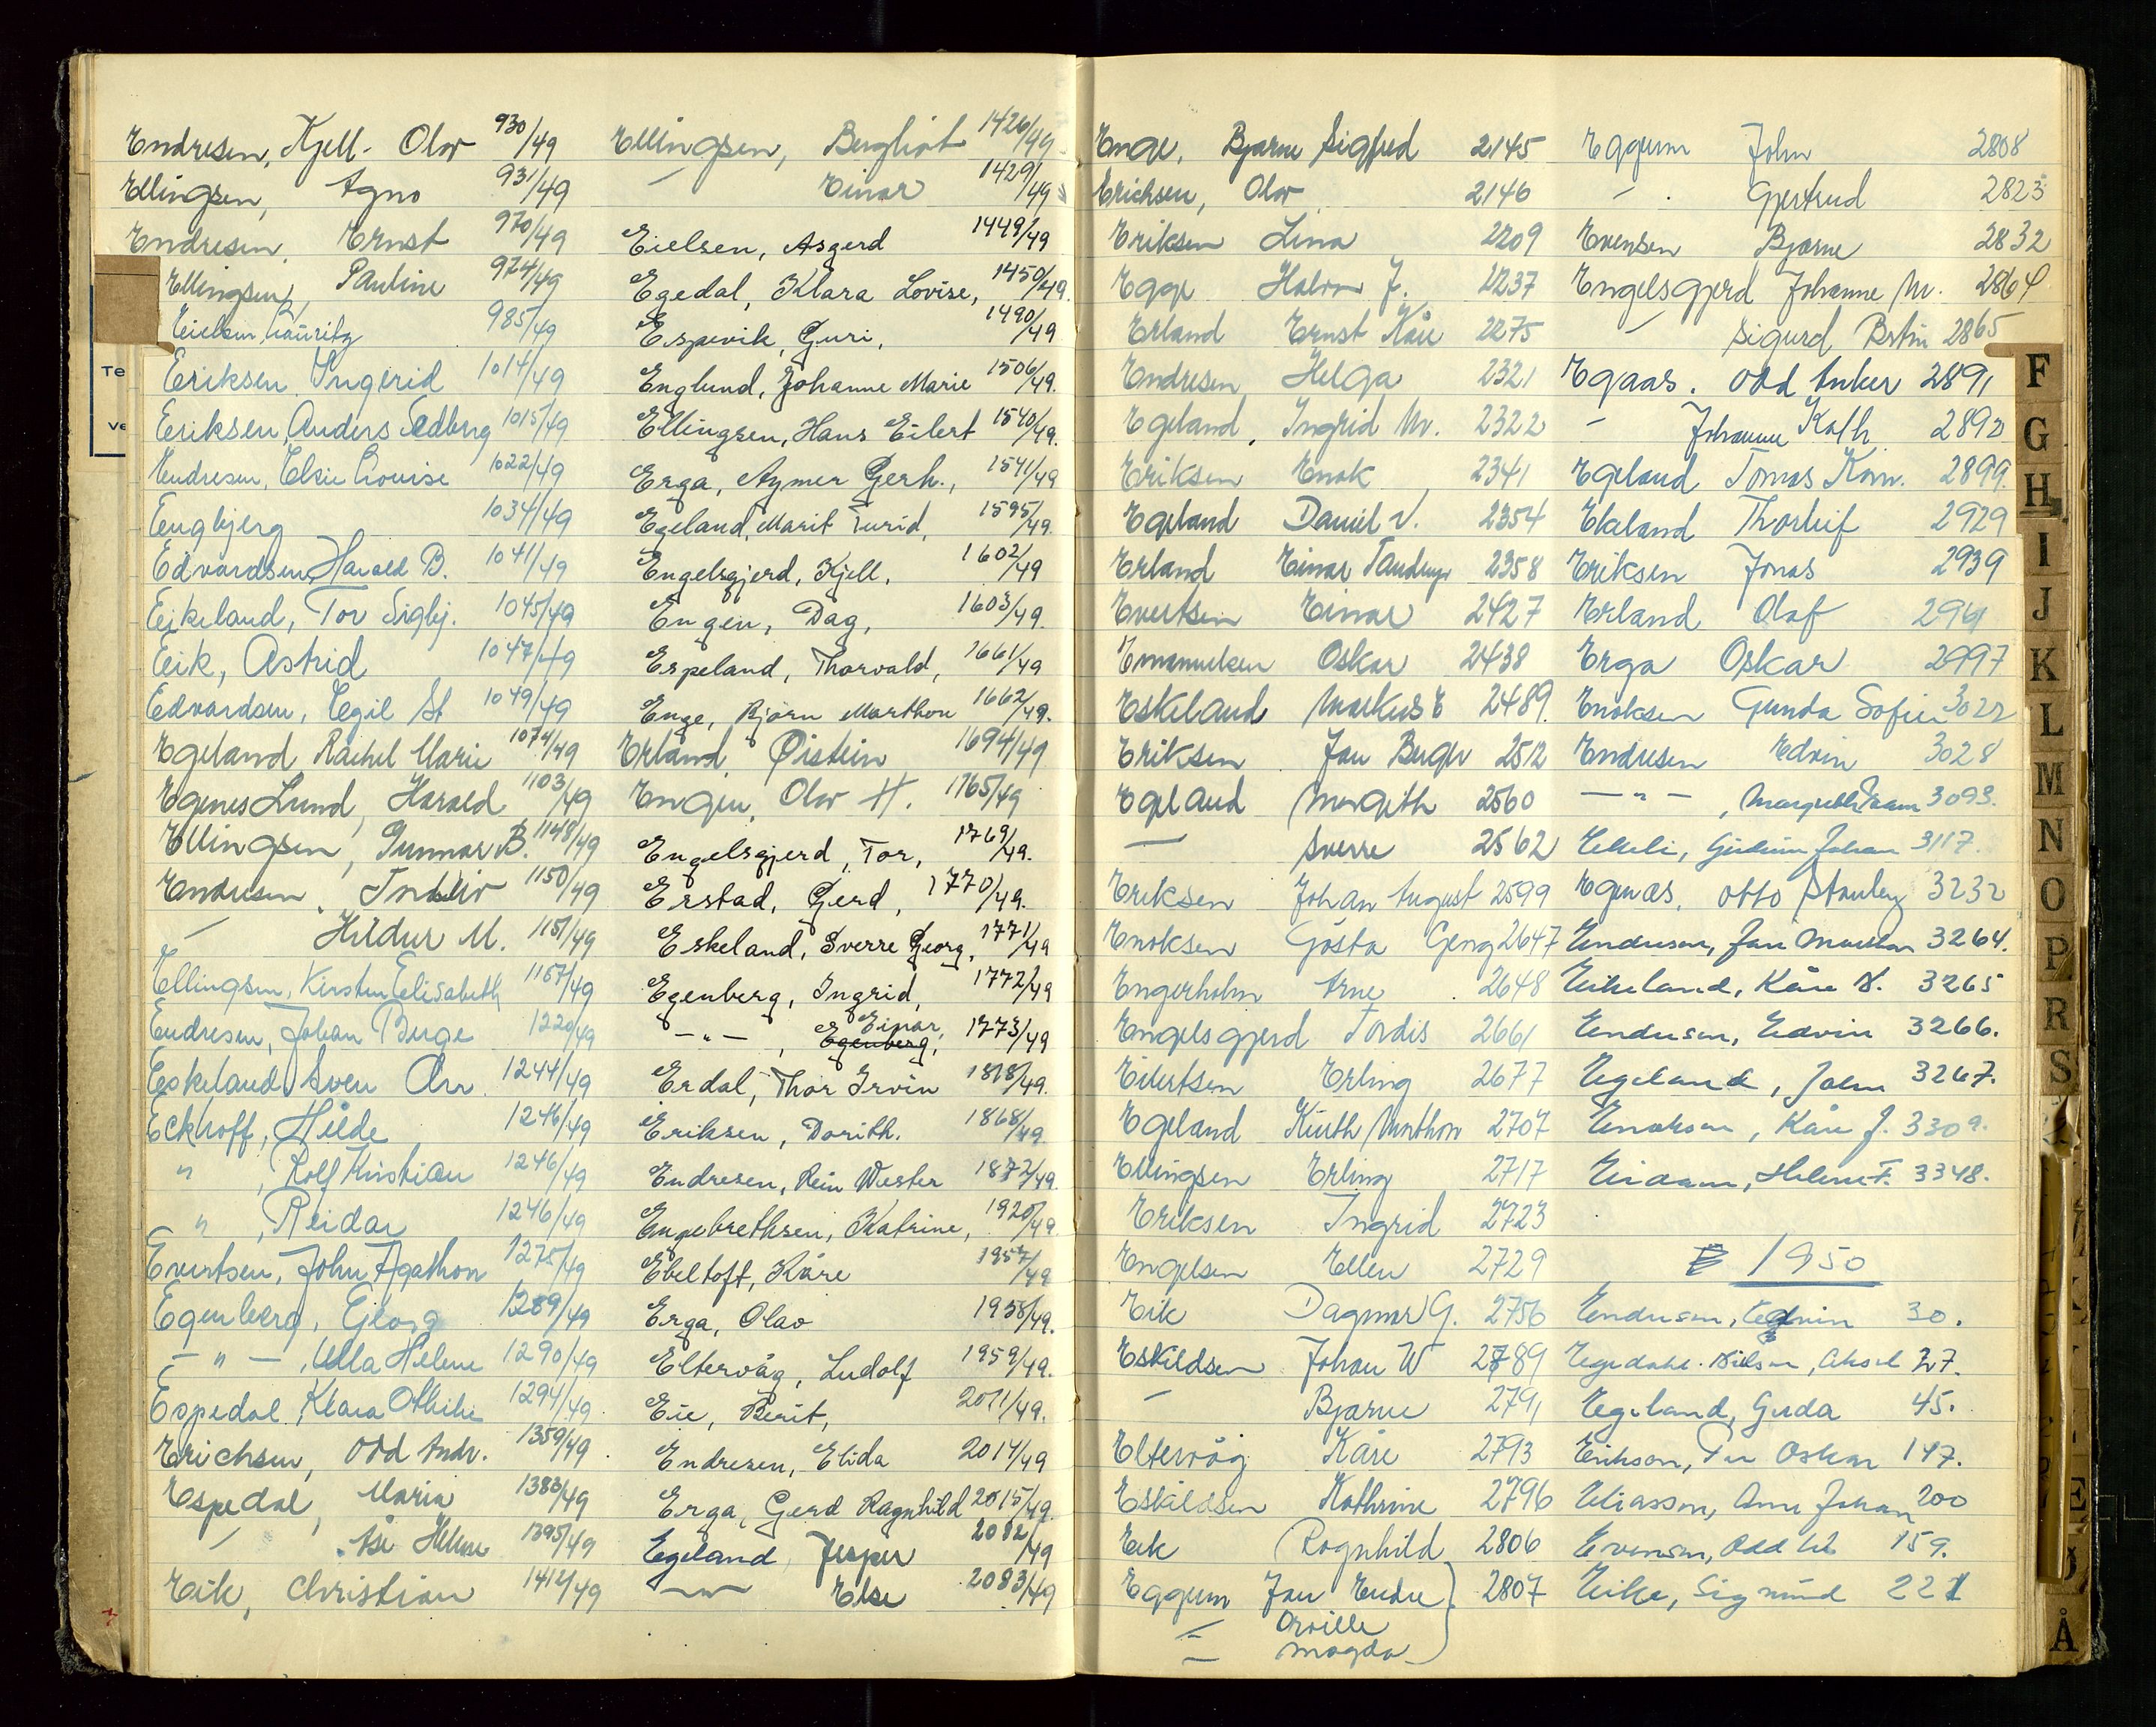 Endresen, Kjell - Olav 930/49
Ellingsen, Agno 931/49
Endresen, Ernst 970/49
Ellingsen, Pauline 974/49
Eielsen, Lauritz 985/49
Eriksen Ingerid 1014/49
Eriksen, Anders Sedberg 1015/49
Endresen, Elsie Louise 1022/49
Engbjerg 1034/49
Edvardsen, Harald B. 1041/49
Eikeland, Tor Sigbj. 1045/49
Eik, Astrid 1047/49
Edvardsen, Egil St 1049/49
Egeland Rachel Marie 1074/49
Egenes Lund, Harald 1103/49
Ellingsen, Gunnar B. 1148/49
Endresen, 1150/49
— Hildur M. 1151/49
Ellingsen, Kirsten Elisabeth 1167/49
Endresen, Johan Birge 1220/49
Eskeland Sven Arr. 1244/49
Eckhoff, Hilde 1246/49
" , Rolf Kristian 1246/49
" , Reidar 1246/49
Evertsen, John Agathon 1275/49
Egenberg, Georg 1289/49
— " — , Ella Helene 1290/49
Espedal, Klara Othilie 1294/49
Erichsen, Odd Andr. 1359/49
Espedal, Maria 1383/49
— Åse Helene 1395/49
Eik, Christian 1412/49
Ellingsen, Bergliot 1426/49
— Einar 1429/49
Eielsen, Asgerd 1449/49
Egedal, Klara Lovise, 1450/49.
Espevik, Guri, 1490/49
Englund, Johanne Marie 1506/49.
Ellingsen, Hans Eilert 1540/49.
Erga, Aymer Gerh., 1541/49
Egeland, Marit Turid, 1595/49.
Engelsgjerd, Kjell, 1602/49
Engen, Dag, 1603/49.
Espeland, Thorvald, 1661/49
Enge, Bjørn Marthon 1662/49.
Erland Øistein 1694/49
Engen, Olav H. 1765/49
Engelsgjerd, Tor, 1769/49.
Erstad, Gerd, 1770/49.
Eskeland, Sverre Georg, 1771/49
Egenberg, Ingrid, 1772/49
— " — , Einar, Egenberg, 1773/49
Erdal, Thor Irvin 1818/49.
Eriksen, Dorith. 1868/49
Endresen, Rein Wester 1872/49.
Engebrethsen, Katrine, 1920/49.
Ebeltoft, Kåre 1957/49
Erga, Olav 1958/49.
Eltervåg, Ludolf 1959/49.
Eie, Berit, 2011/49.
Endresen, Elida 2014/49
Erga, Gerd Ragnhild 2015/49.
Egeland, Jesper 2082/49
— " — Else 2083/49
Enge, Bjarne Sigfred 2145
Erichsen, Olav 2146
Eriksen Lina 2209
Egge Halvor J. 2237
Erland Ernst Kåre 2275
Endresen Helga 2321
Egeland, Ingrid M. 2322
Eriksen Enok 2341
Egeland Daniel V. 2354
Erland Einar 2358
Evertsen Einar 2427
Emanuelsen Oskar 2438
Eskeland Markus E 2489.
Eriksen Jan Berger 2512
Egeland Margith 2560
— Sverre 2562
Eriksen Johan August 2599
Enoksen Gösta Georg 2647
Engerholm Arne 2648
Engelsgjerd Tordis 2661
Eilertsen Erling 2677
Egeland Kurth Marthon 2707
Ellingsen Erling 2717
Eriksen Ingrid 2723
Engelsen Ellen 2729
Eik Dagmar G. 2756
Eskildsen Johan W 2789
— Bjarne 2791
Eltervåg Kåre 2793
Eskildsen Kathrine 2796
Eik Ragnhild 2806
Eggum Jan Endre 2807
— Orville
— Magda
Eggum John 2808
— Gjertrud 2823
Evensen Bjarne 2832
Engelsgjerd Johanne M. 2864
— Sigurd 2865
Egaas. Odd Anker 2891
— Johanne Kath. 2892
Egeland Tomas Korn. 2899.
Ekeland Thorleif 2929
Eriksen Jonas 2939
Erland Olaf 2961
Erga Oskar 2997
Enoksen Gunda Sofie 3022
Endresen Edvin 3028
— " — , 3093.
Eikeli, Johan 3117.
Egenæs, Otto Stanley 3232
Endresen, Jan 3264.
Eikeland, Kåre 3265
Endresen, Edvin 3266.
Egeland, John 3267.
Enoksen, Kåre J. 3309.
Helene F. 3348.
1950
Endresen, Edvin 30.
Egedahl-Nielsen, Aksel 37.
Egeland, Gerda 45.
Erikson, Per Oskar 147.
Eliasson, Arne Johan 200
Evensen, Odd 159.
Eike, Sigmund 221
F
G
H
I
J
K
L
M
N
O
P
R
S
Å